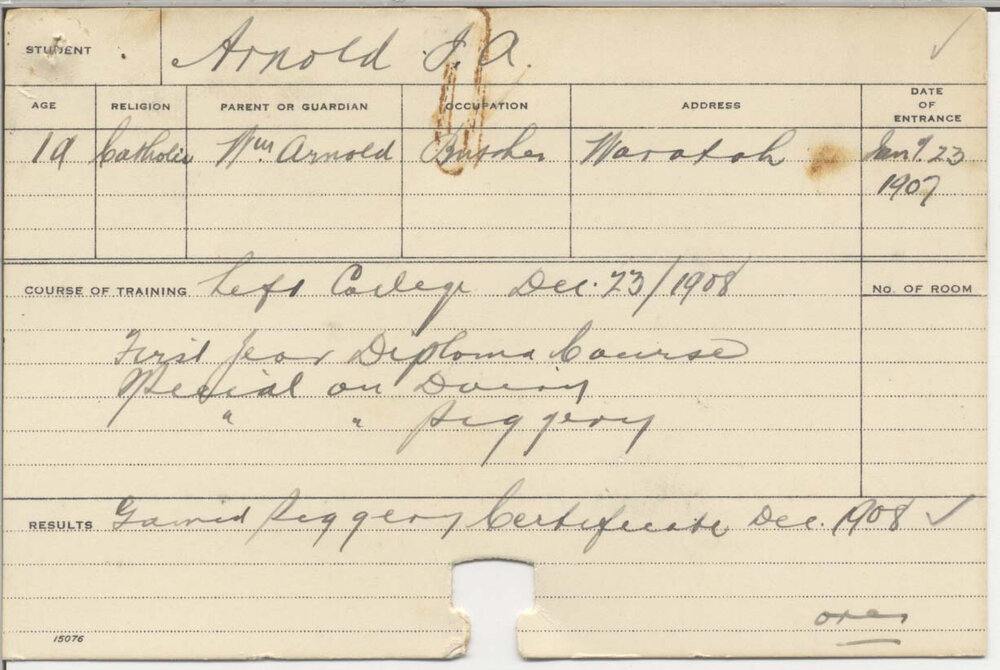 STUDENT Arnold J. A.
AGE RELIGION PARENT OR GUARDIAN OCCUPATION ADDRESS DATE OF ENTRANCE
19 Catholic Wm Arnold Butcher Waratah Jany. 23
1907
COURSE OF TRAINING Left College Dec. 23/1908 No. OF ROOM
First Year Diploma Course
Special on Dairy
" " Piggery
RESULTS Gained Piggery Certificate Dec. 1908 ✓
over
15076